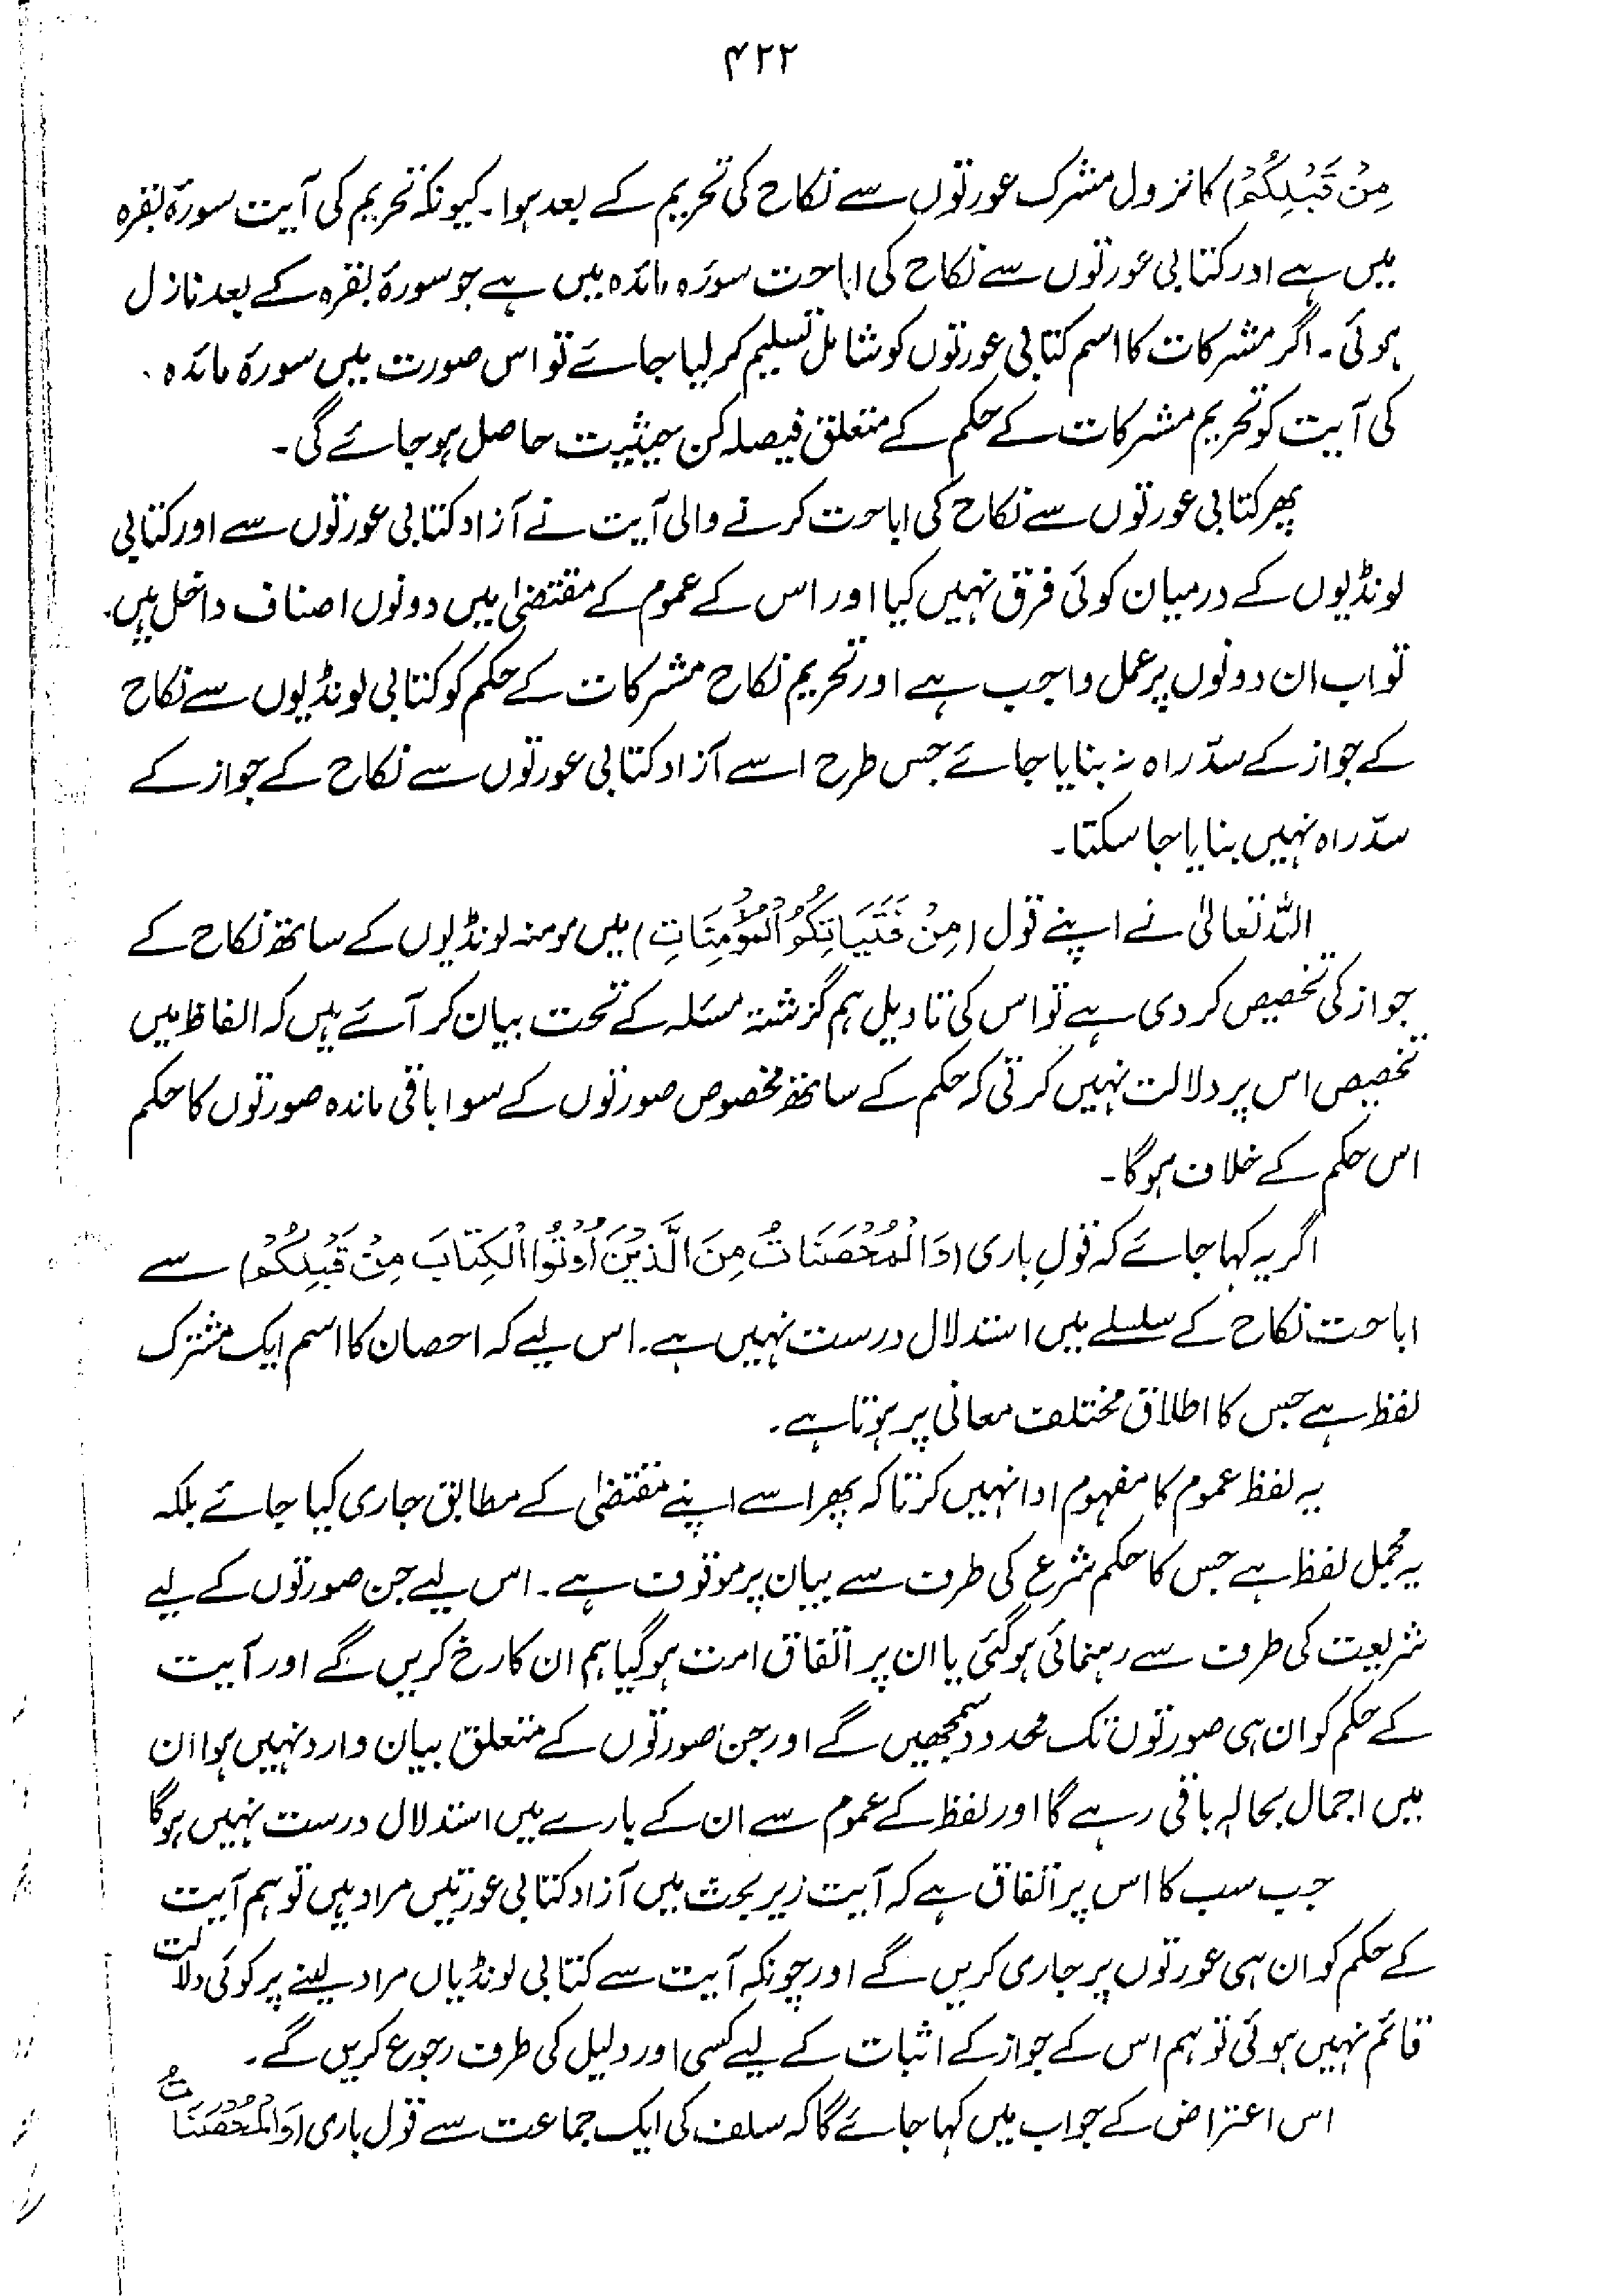 ۴۲۲
مِنْ قَبْلِكُمْ) کا نزول مشرک عورتوں سے نکاح کی تحریم کے بعد ہوا۔ کیونکہ تحریم کی آیت سورۂ بقرہ
میں ہے اور کتابی عورتوں سے نکاح کی اباحت سورۂ مائدہ میں ہے جو سورۂ بقرہ کے بعد نازل
ہوئی۔ اگر مشرکات کا اسم کتابی عورتوں کو شامل تسلیم کر لیا جائے تو اس صورت میں سورۂ مائدہ
کی آیت کو تحریم مشرکات کے حکم کے متعلق فیصلہ کن حیثیت حاصل ہو جائے گی۔
پھر کتابی عورتوں سے نکاح کی اباحت کرنے والی آیت نے آزاد کتابی عورتوں سے اور کتابی
لونڈیوں کے درمیان کوئی فرق نہیں کیا اور اس کے عموم کے مقتضیٰ میں دونوں اصناف داخل ہیں۔
تو اب ان دونوں پر عمل واجب ہے اور تحریم نکاح مشرکات کے حکم کو کتابی لونڈیوں سے نکاح
کے جواز کے سدّ راہ نہ بنایا جائے جس طرح اسے آزاد کتابی عورتوں سے نکاح کے جواز کے
سدّ راہ نہیں بنایا جا سکتا۔
اللہ تعالیٰ نے اپنے قول (مِنْ فَتَيَاتِكُمُ الْمُؤْمِنَاتِ) میں مومنہ لونڈیوں کے ساتھ نکاح کے
جواز کی تخصیص کر دی ہے تو اس کی تاویل ہم گزشتہ مسئلہ کے تحت بیان کر آئے ہیں کہ الفاظ میں
تخصیص اس پر دلالت نہیں کرتی کہ حکم کے ساتھ مخصوص صورتوں کے سوا باقی ماندہ صورتوں کا حکم
اس حکم کے خلاف ہو گا۔
اگر یہ کہا جائے کہ قولِ باری (وَالْمُحْصَنَاتُ مِنَ الَّذِيْنَ اُوْتُوا الْكِتَابَ مِنْ قَبْلِكُمْ) سے
اباحت نکاح کے سلسلے میں استدلال درست نہیں ہے۔ اس لیے کہ احصان کا اسم ایک مشترک
لفظ ہے جس کا اطلاق مختلف معانی پر ہوتا ہے۔
یہ لفظ عموم کا مفہوم ادا نہیں کرتا کہ پھر اسے اپنے مقتضیٰ کے مطابق جاری کیا جائے بلکہ
یہ مجمل لفظ ہے جس کا حکم شرع کی طرف سے بیان پر موقوف ہے۔ اس لیے جن صورتوں کے لیے
شریعت کی طرف سے رہنمائی ہو گئی یا ان پر اتفاق امت ہو گیا ہم ان کا رخ کریں گے اور آیت
کے حکم کو ان ہی صورتوں تک محدود سمجھیں گے اور جن صورتوں کے متعلق بیان وارد نہیں ہوا ان
میں اجمال بحالہ باقی رہے گا اور لفظ کے عموم سے ان کے بارے میں استدلال درست نہیں ہو گا
جب سب کا اس پر اتفاق ہے کہ آیت زیر بحث میں آزاد کتابی عورتیں مراد ہیں تو ہم آیت
کے حکم کو ان ہی عورتوں پر جاری کریں گے اور چونکہ آیت سے کتابی لونڈیاں مراد لینے پر کوئی دلالت
قائم نہیں ہوئی تو ہم اس کے جواز کے اثبات کے لیے کسی اور دلیل کی طرف رجوع کریں گے۔
اس اعتراض کے جواب میں کہا جائے گا کہ سلف کی ایک جماعت سے قول باری (وَالْمُحْصَنَاتُ